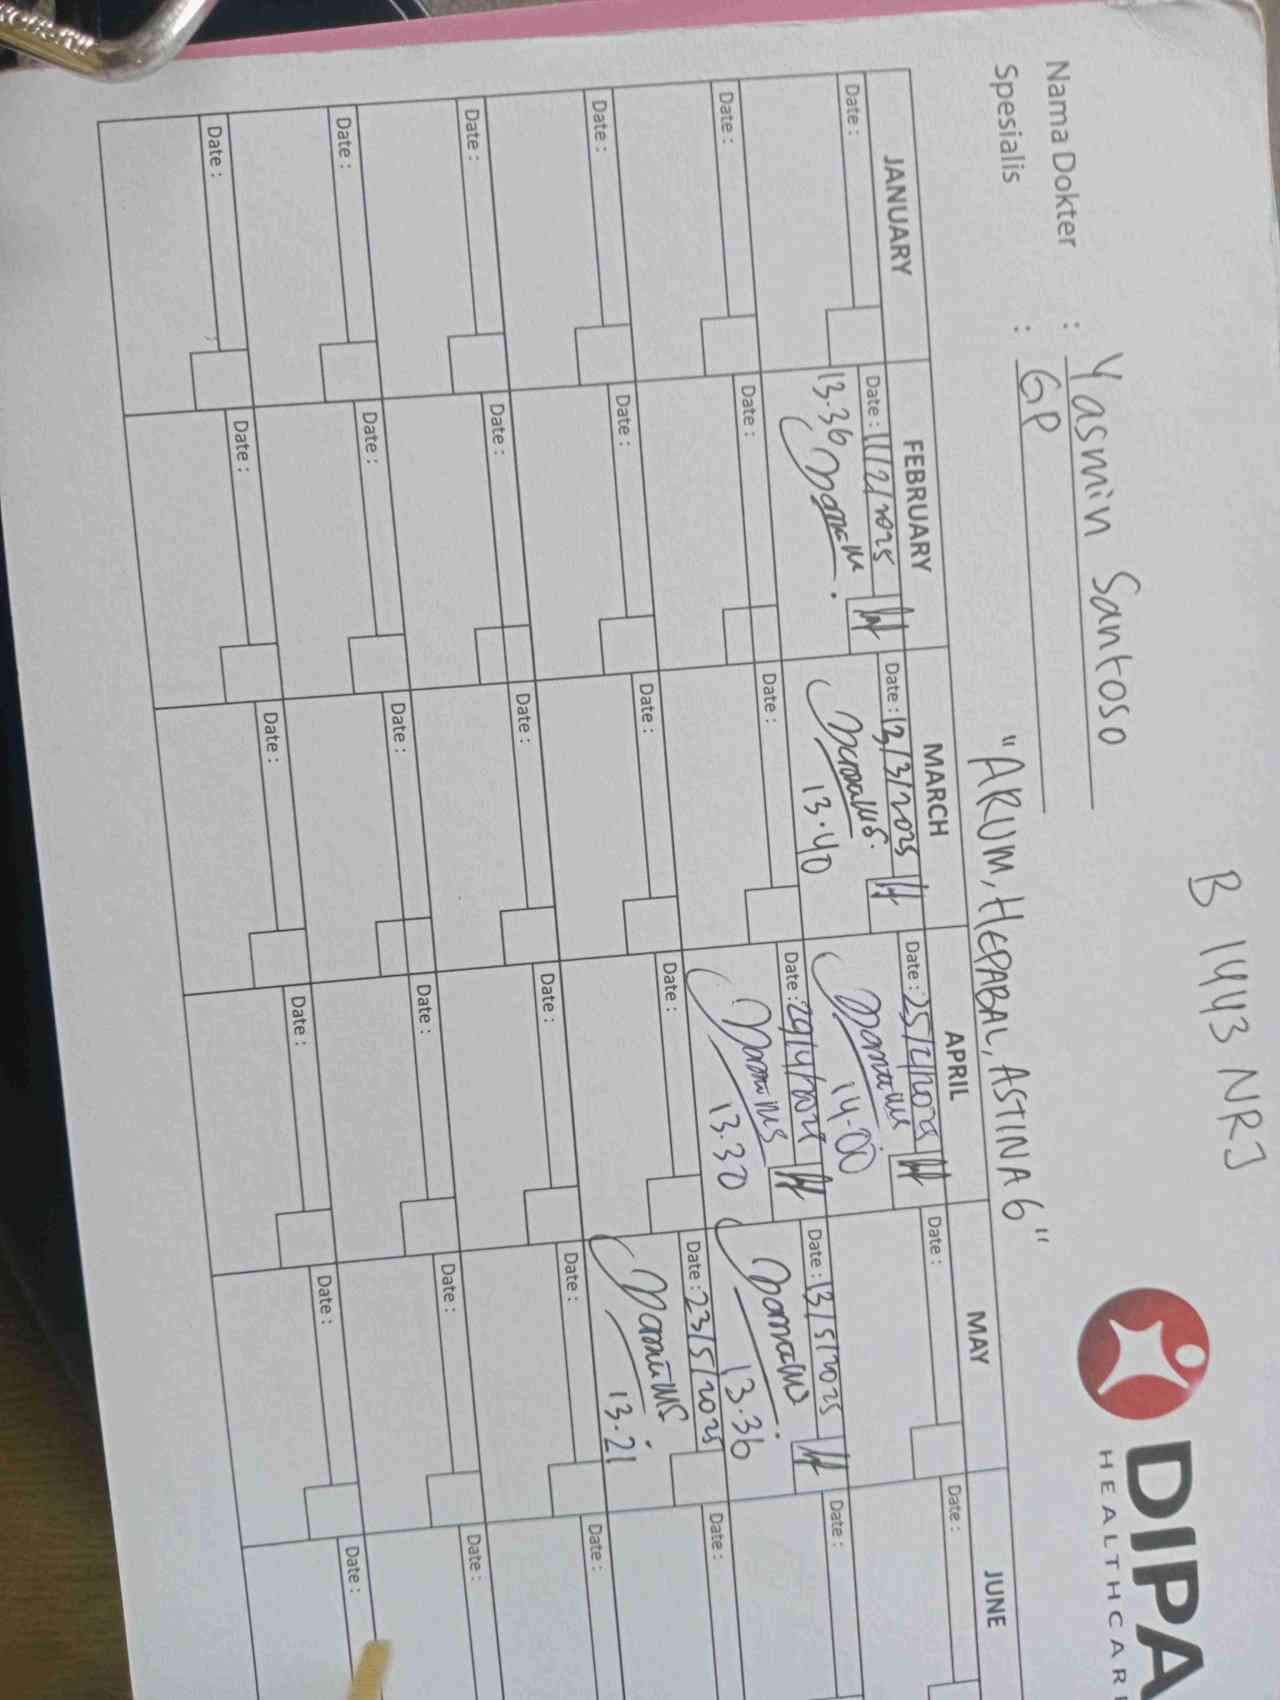 B 1443 NRJ
DIPA
HEALTHCAR
Nama Dokter : Yasmin Santoso
Spesialis : GP
"ARUM, HEPABAL, ASTINA 6"
JANUARY FEBRUARY MARCH APRIL MAY JUNE
Date : Date : 11/2/2025 Date : 13/3/2025 Date : 25/4/2025 Date : Date :
13.36 13.40 14.00
Date : Date : Date : Date : 29/4/2025 Date : 13/5/2025 Date :
13.30 13.36
Date : Date : Date : Date : Date : 23/5/2025 Date :
13.21
Date : Date : Date : Date : Date : Date :
Date : Date : Date : Date : Date : Date :
Date : Date : Date : Date : Date : Date :